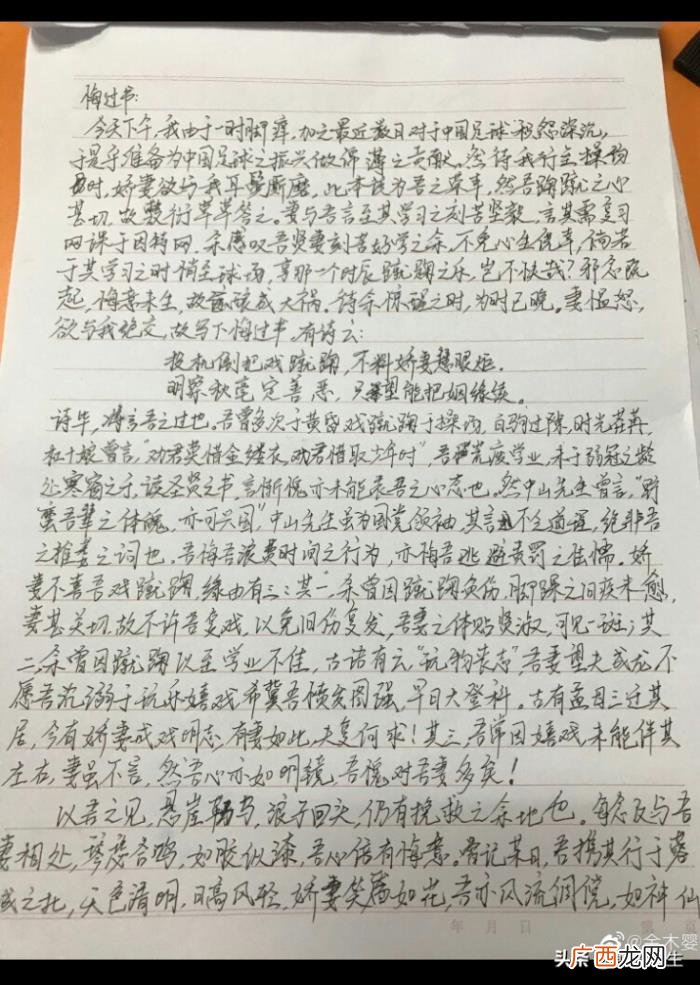 悔过书:
今天下午,我由于一时脚痒,加之最近数日对于中国足球积怨深沉,
于是乎准备为中国足球之振兴做绵薄之贡献。然待我行至操场
时,娇妻欲与我耳鬓厮磨,此本该为吾之荣幸,然吾蹴鞠之心
甚切,故敷衍草草答之。妻与吾言至其学习之刻苦坚毅,言其需复习
网课于因特网,余感叹吾贤妻刻苦好学之余,不免心生侥幸,倘若
于其学习之时悄至球场,享那一个时辰蹴鞠之乐,岂不快哉?邪念既
起,悔意未生,故酿成大祸。待余惊醒之时,为时已晚。妻愠怒,
欲与我绝交,故写下悔过书。有诗云:
投机倒把戏蹴鞠,不料娇妻慧眼炬.
明察秋毫定善恶,只望能把姻缘续。
诗毕,将言吾之过也。吾曾多次于黄昏戏蹴鞠于操场,白驹过隙,时光荏苒,
杜十娘曾言,"劝君莫惜金缕衣,劝君惜取少年时",吾荒废学业,未于弱冠之龄
处寒窗之乐,读圣贤之书,言惭愧亦未能表吾之心态也。然中山先生曾言,"野
蛮吾辈之体魄,亦可兴国",中山先生虽为国党领袖,其言不乏道理,绝非吾
之推诿之词也。吾悔吾浪费时间之行为,亦悔吾逃避责罚之怯懦。娇
妻不喜吾戏蹴鞠,缘由有三:其一,余曾因蹴鞠负伤,脚踝之旧疾未愈,
妻甚关切,故不许吾复戏,以免旧伤复发,吾妻之体贴贤淑,可见一斑;其
二,余曾因蹴鞠以至学业不佳,古语有云"玩物丧志",吾妻望夫成龙,不
愿吾沉溺于玩乐嬉戏,希冀吾愤发图强,早日大登科。古有孟母三迁其
居,今有娇妻成戏明志,有妻如此,夫复何求!其三,吾常因嬉戏未能伴其
左右,妻虽不言,然吾心亦如明镜,吾愧对吾妻多矣!
以吾之见,悬崖勒马,浪子回头,仍有挽救之余地也。每念及与吾
妻相处,琴瑟合鸣,如胶似漆,吾心倍有悔意。尝记某日,吾携其行于蓉
城之北,天色清明,日高风轻,娇妻笑靥如花,吾亦风流倜傥,如神仙
年 月 日
@金木婴
头条
广西龙网
生